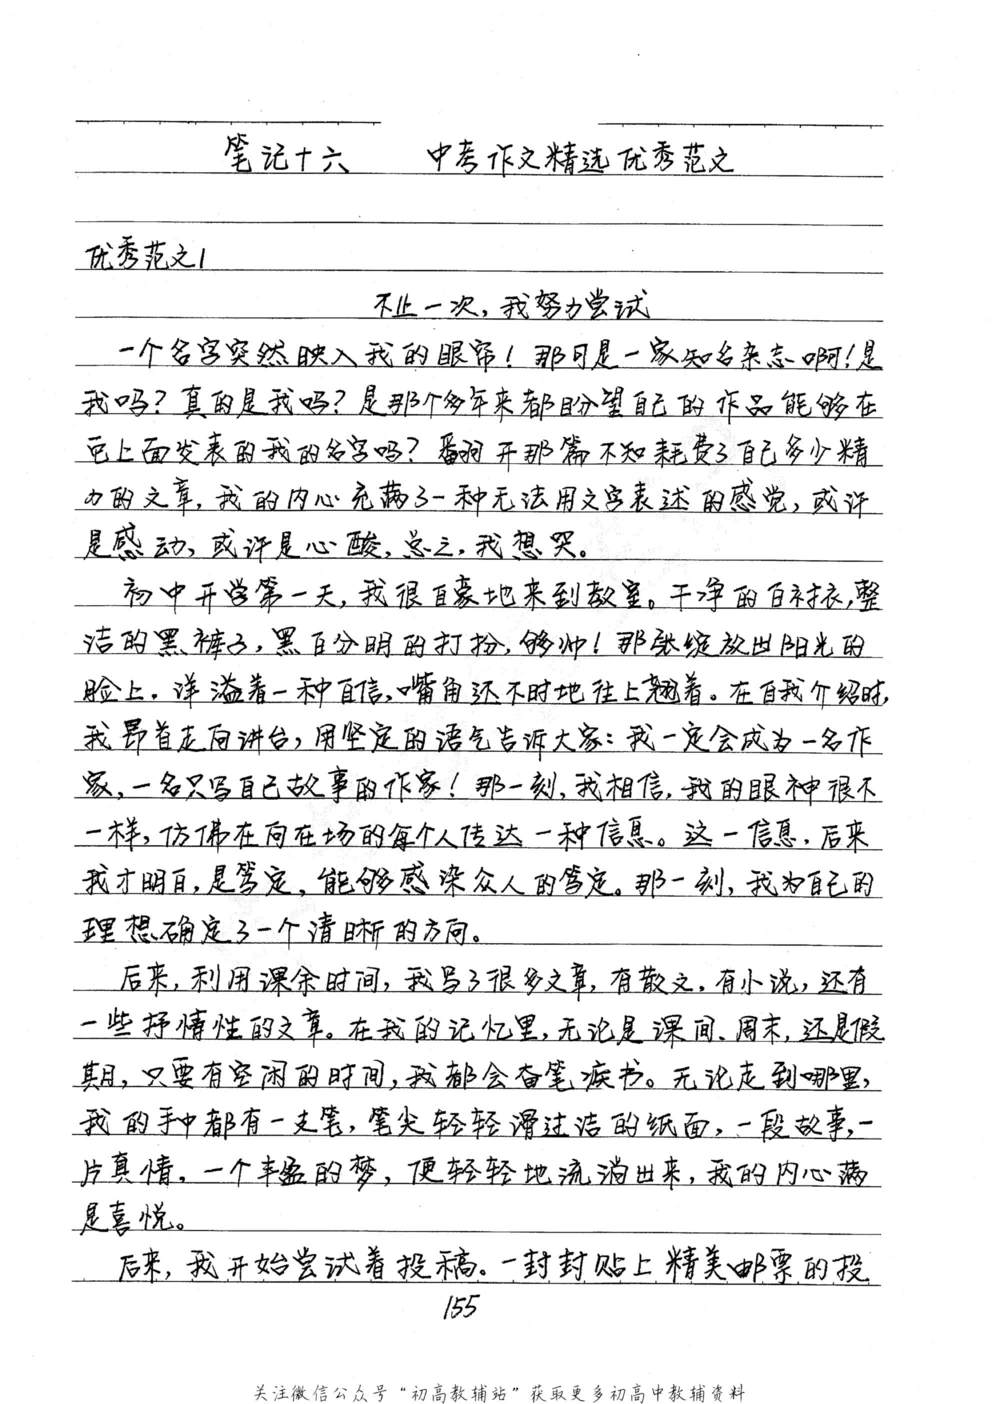 笔记十六 中考作文精选优秀范文
优秀范文1
不止一次，我努力尝试
一个名字突然映入我的眼帘！那可是一家知名杂志啊！是
我吗？真的是我吗？是那个多年来都盼望自己的作品能够在
它上面发表的我的名字吗？翻开那篇不知耗费了自己多少精
力的文章，我的内心充满了一种无法用文字表述的感觉，或许
是感动，或许是心酸，总之，我想哭。
初中开学第一天，我很自豪地来到教室。干净的白衬衣，整
洁的黑裤子，黑白分明的打扮，够帅！那张绽放出阳光的
脸上，洋溢着一种自信，嘴角还不时地往上翘着。在自我介绍时，
我昂首走向讲台，用坚定的语气告诉大家：我一定会成为一名作
家，一名只写自己故事的作家！那一刻，我相信，我的眼神很不
一样，仿佛在向在场的每个人传达一种信息。这一信息，后来
我才明白，是笃定，能够感染众人的笃定。那一刻，我为自己的
理想确定了一个清晰的方向。
后来，利用课余时间，我写了很多文章，有散文，有小说，还有
一些抒情性的文章。在我的记忆里，无论是课间、周末，还是假
期，只要有空闲的时间，我都会奋笔疾书。无论走到哪里，
我的手中都有一支笔，笔尖轻轻滑过洁的纸面，一段故事，一
片真情，一个丰盈的梦，便轻轻地流淌出来，我的内心满
是喜悦。
后来，我开始尝试着投稿。一封封贴上精美邮票的投
155
关注微信公众号“初高教辅站”获取更多初高中教辅资料